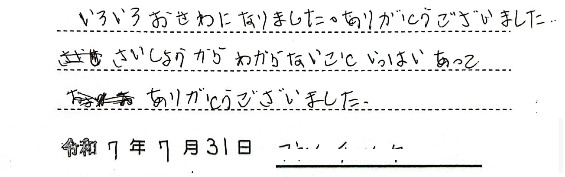 いろいろおせわになりました。ありがとうございました。
さいしょうからわからないこといっぱいあって
ありがとうございました。
令和7年7月31日